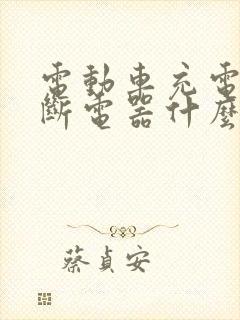 電動車充電
斷電器什麼
蔡貞安